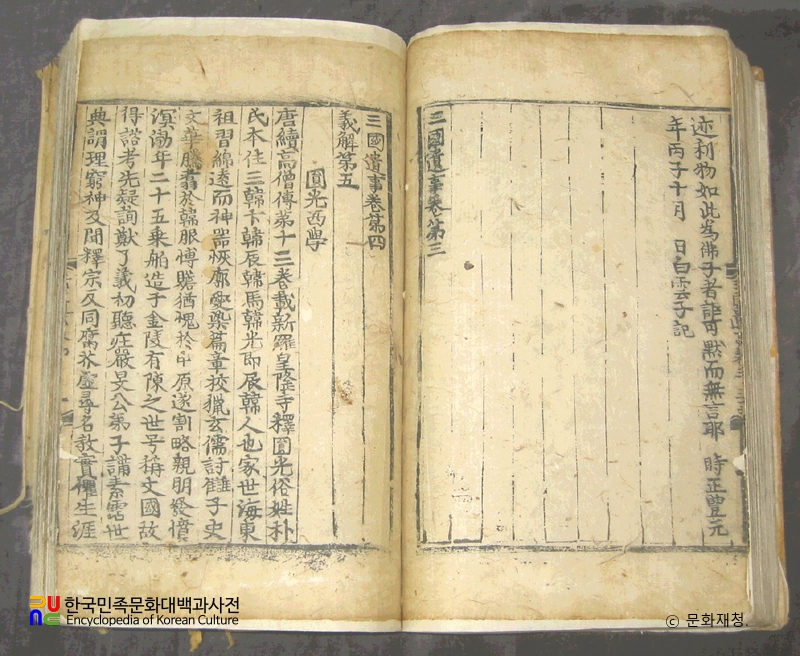 迹利物如此為佛子者詎可默而無言耶 時正豊元
年丙子十月 日白雲子記
三國遺事卷第三
三國遺事卷第四
義解第五
圓光西學
唐續高僧傳第十三卷載新羅皇隆寺釋圓光俗姓朴
氏本住三韓卞韓辰韓馬韓光即辰韓人也家世海東
祖習綿遠而神器恢廓愛染篇章校獵玄儒討讎子史
文華騰翥於韓服愽贍猶愧於中原遂割略親朋發憤
溟渤年二十五乗舶造于金陵有陳之世号稱文國故
得諮考先疑詢猷了義初聽莊嚴旻公弟子講素霑世
典謂理窮神及聞釋宗反同腐芥虛尋名教實懼生涯
한국민족문화대백과사전
Encyclopedia of Korean Culture
ⓒ 문화재청.